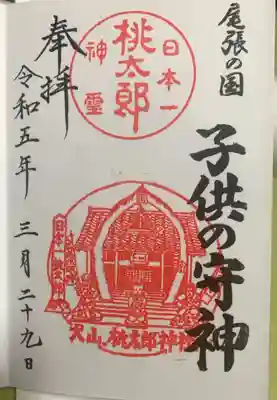 尾張の国
子供の守神
日本一
桃太郎
神璽
犬山 桃太郎神社
奉拝
令和五年 三月二十九日